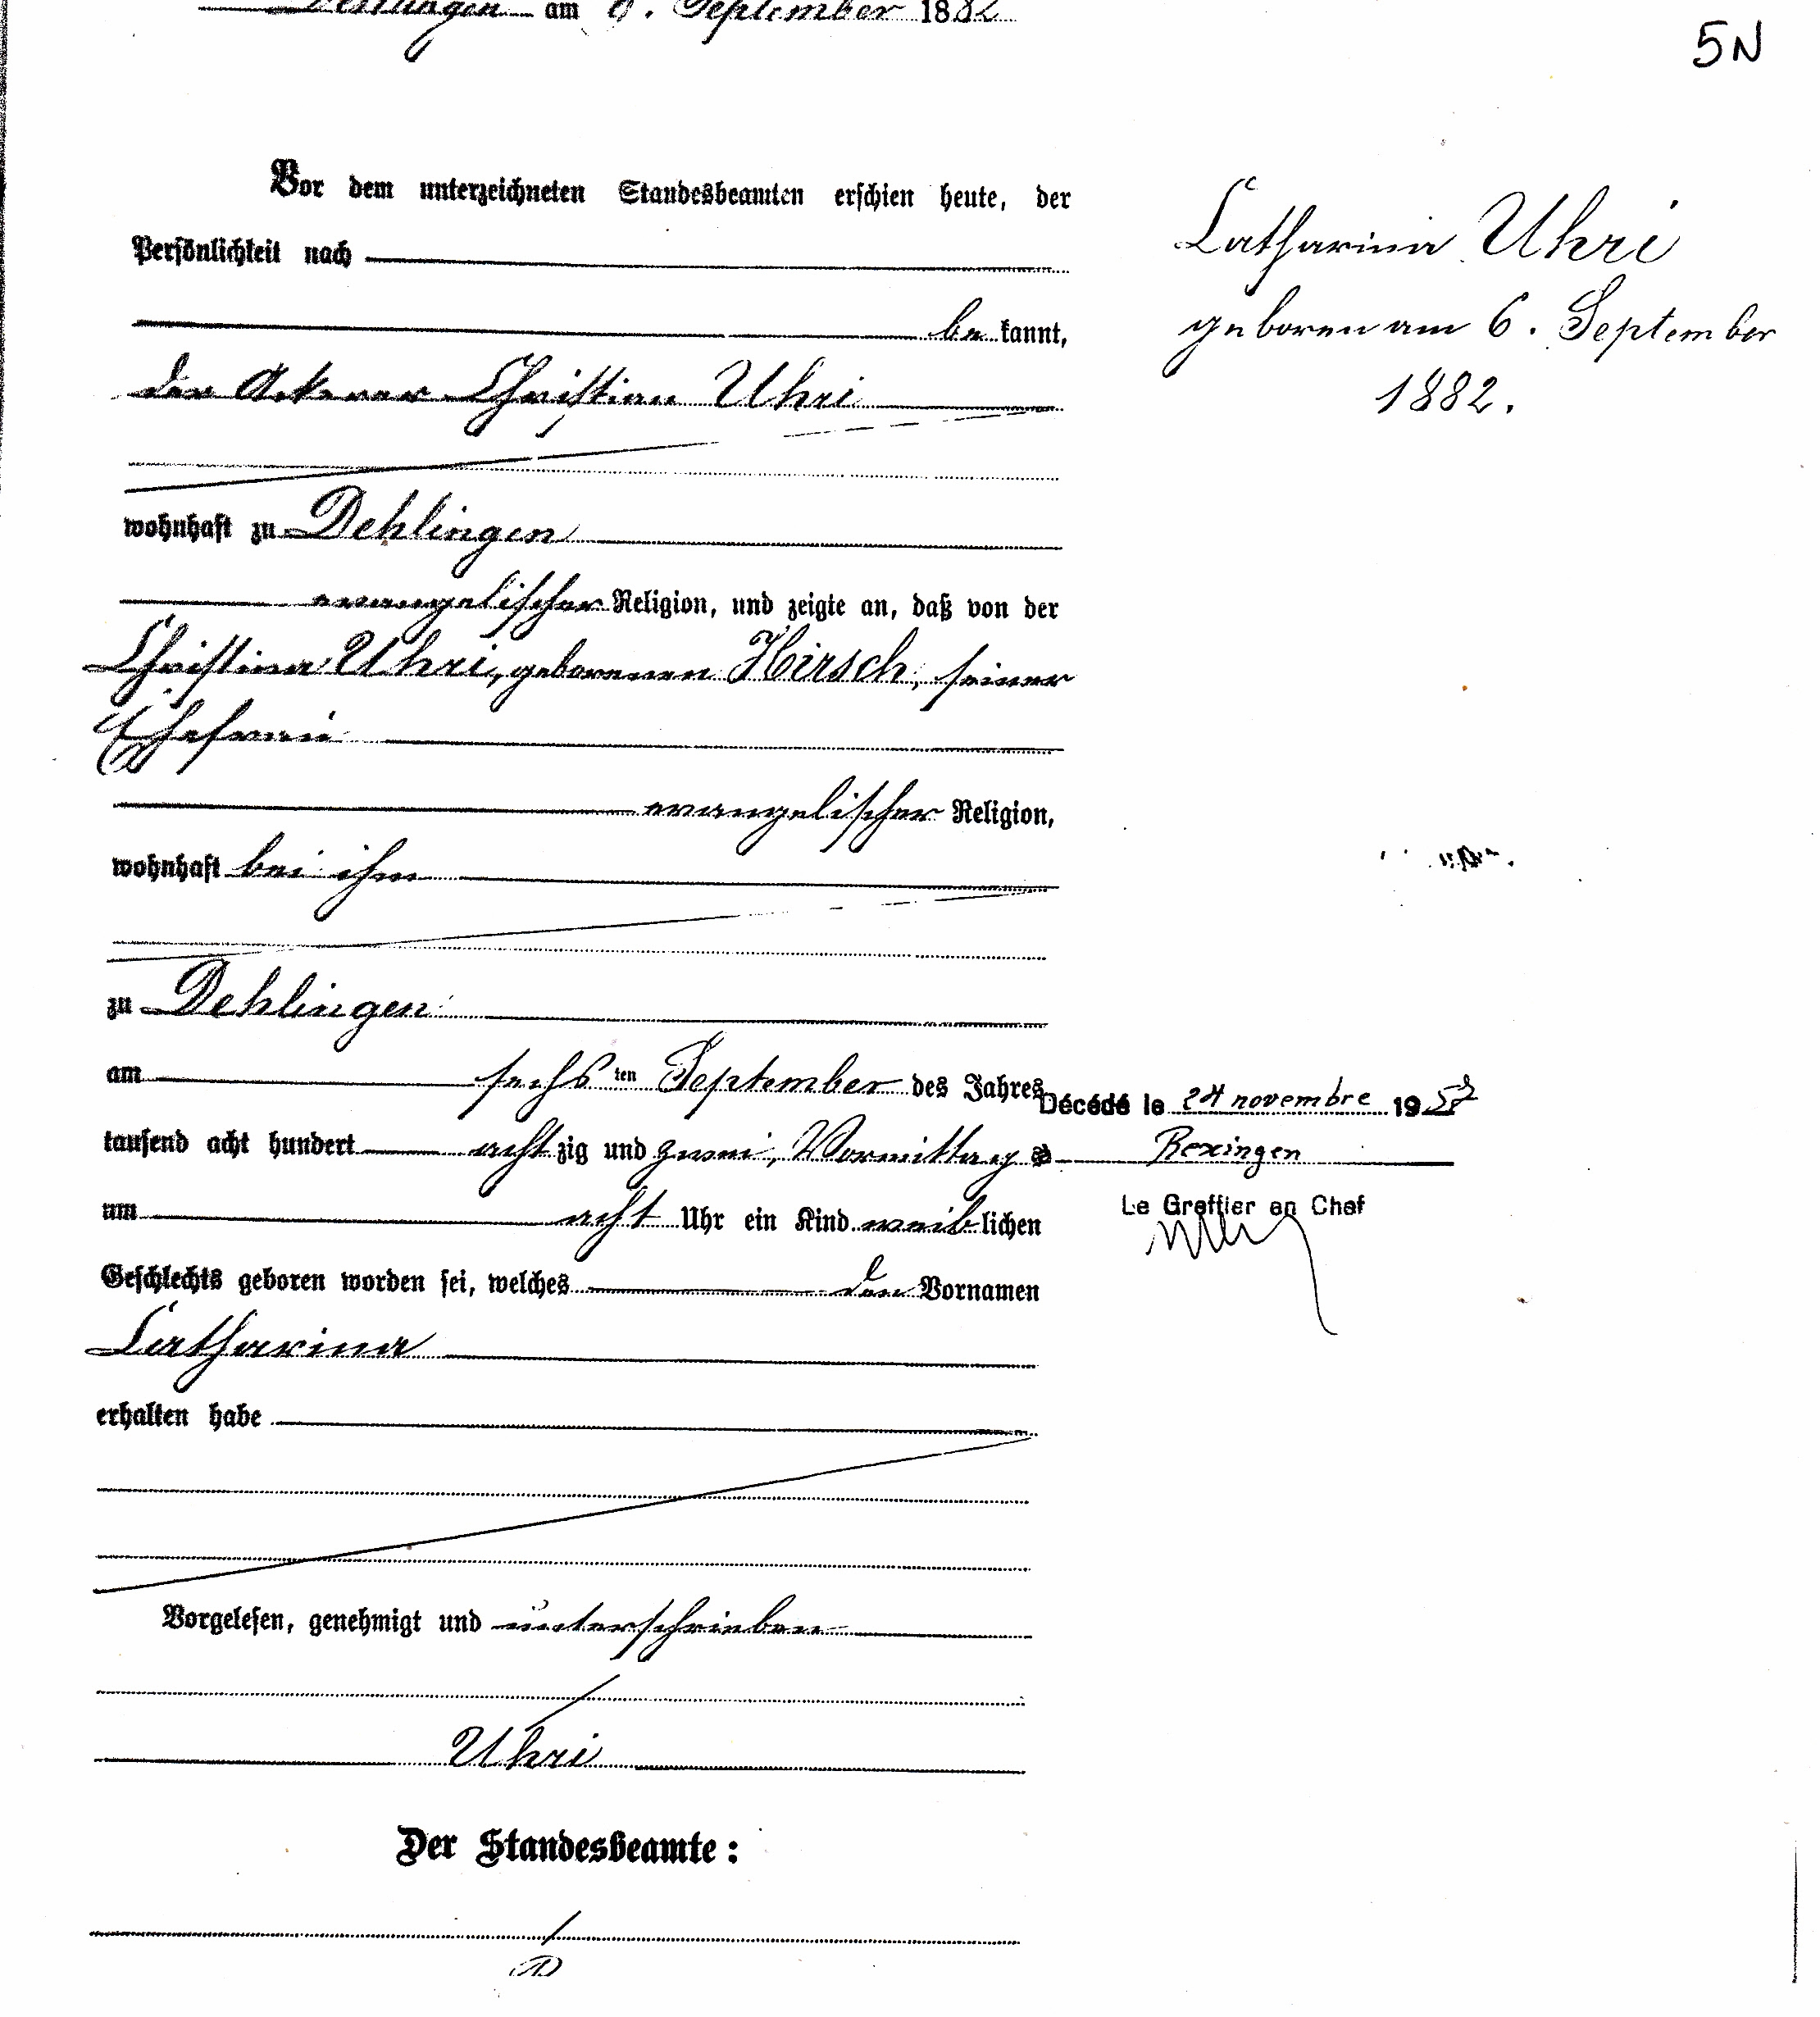 Dehlingen am 6. September 1882
5N
Vor dem unterzeichneten Standesbeamten erschien heute, der
Persönlichkeit nach
be kannt,
der Ackerer Christian Uhri
wohnhaft zu Dehlingen
evangelischer Religion, und zeigte an, daß von der
Christina Uhri, geborenen Hirsch, seiner
Ehefrau
evangelischer Religion,
wohnhaft bei ihm
zu Dehlingen
am sechs ten September des Jahres
tausend acht hundert acht zig und zwei, Vormittag s
um acht Uhr ein Kind weib lichen
Geschlechts geboren worden sei, welches den Vornamen
Catharina
erhalten habe
Vorgelesen, genehmigt und unterschrieben
Uhri
Der Standesbeamte:
Catharina Uhri
geboren am 6. September
1882.
Décédé le 24 novembre 19
Rexingen
Le Greffier en Chef